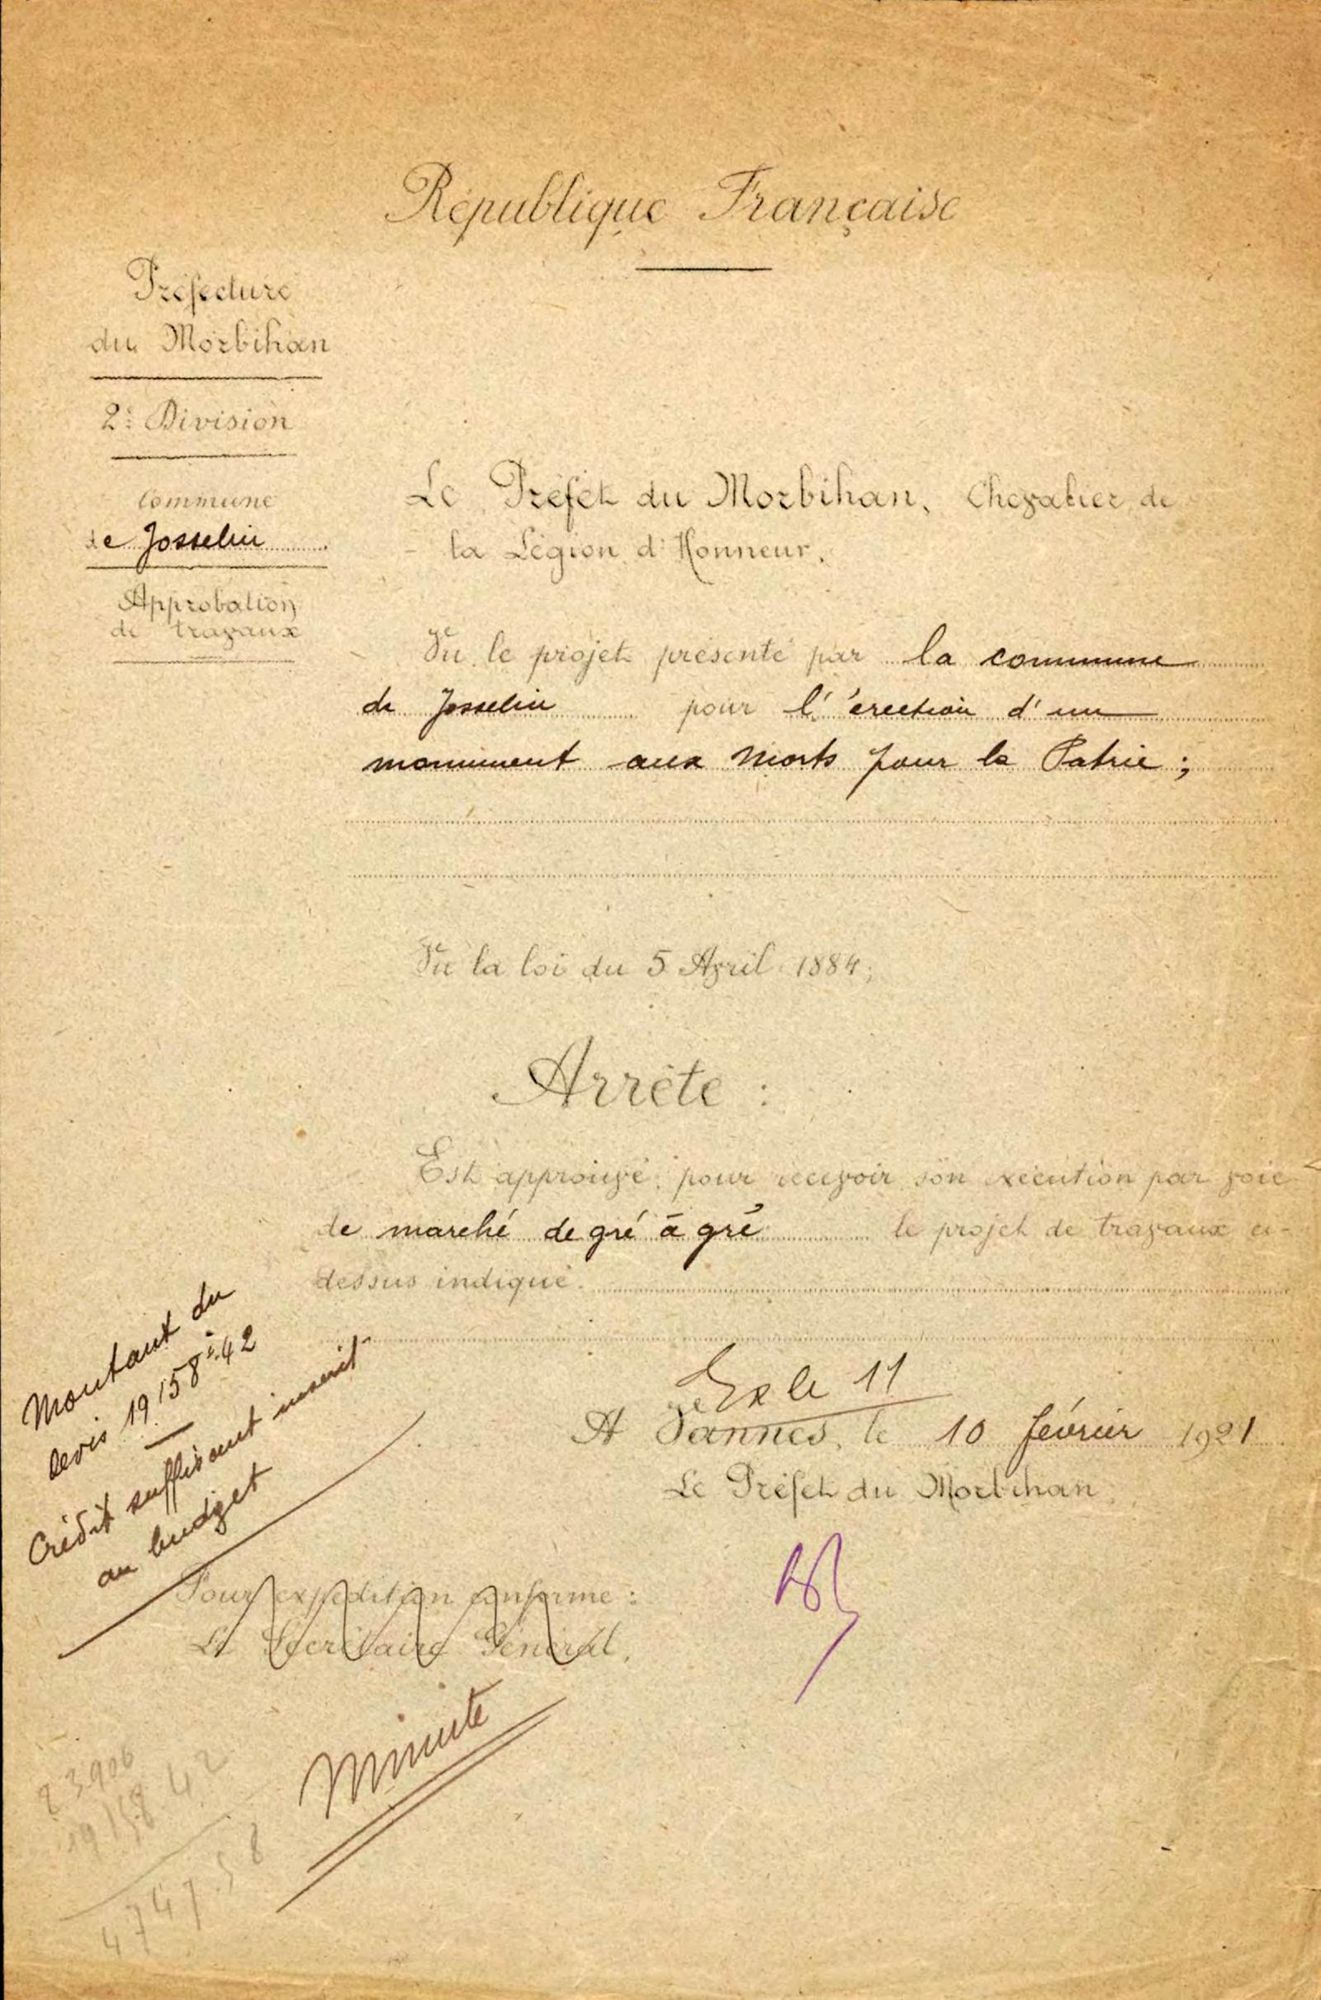 République Française
Préfecture
du Morbihan
2e Division
Commune
de Josselin
Approbation
de travaux
Le Préfet du Morbihan, Chevalier de
la Légion d'Honneur,
Vu le projet présenté par la commune
de Josselin pour l'érection d'un
monument aux Morts pour la Patrie ;
Vu la loi du 5 Avril 1884;
Arrête :
Est approuvé, pour recevoir son exécution par voie
de marché de gré à gré le projet de travaux ci-
dessus indiqué.
Montant du
devis 19158f.42
Crédit suffisant inscrit
au budget
Ex le 11
A Vannes, le 10 février 1921
Le Préfet du Morbihan,
Pour expédition conforme :
Le Secrétaire Général,
Minute
23906
19158.42
4747.58